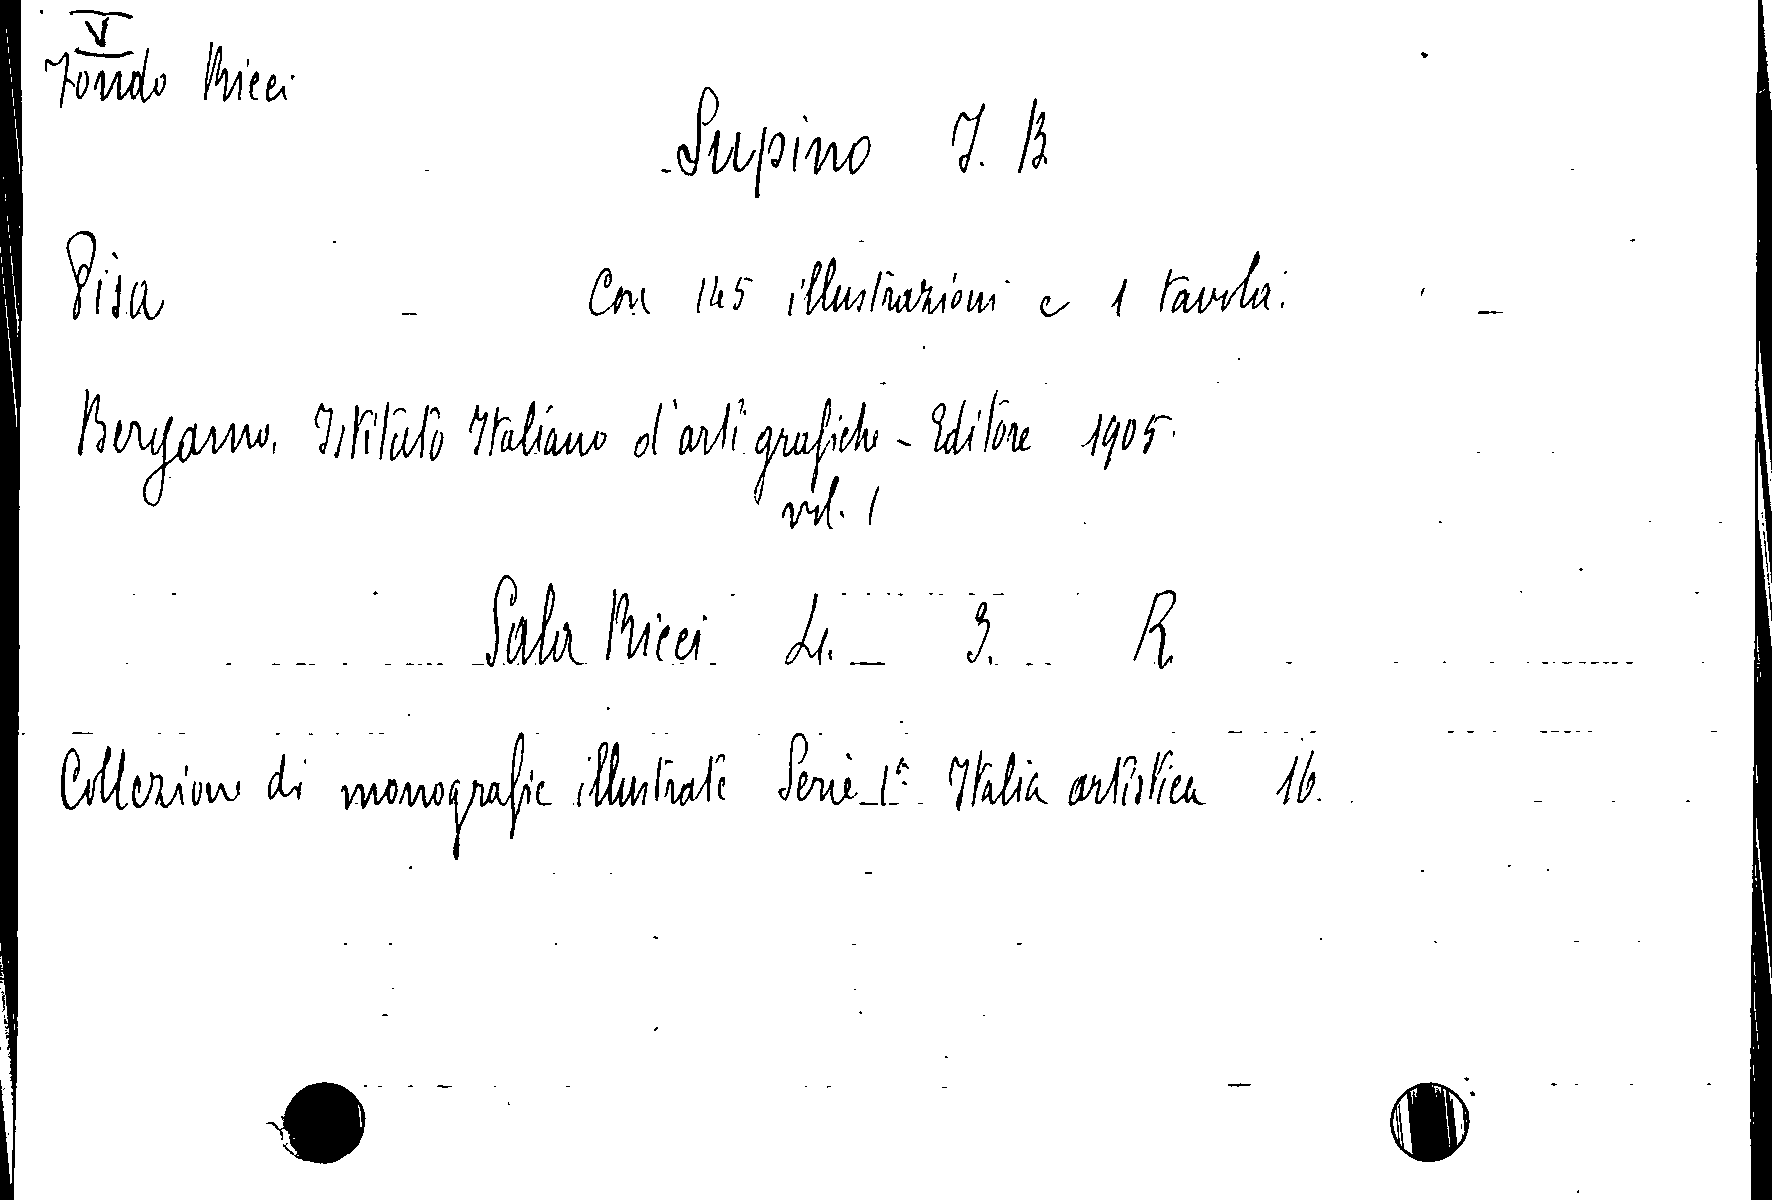 V
Fondo Ricci
Supino I. B.
Pisa - Con 145 illustrazioni e 1 tavola. -
Bergamo. Istituto Italiano d'arti grafiche - Editore 1905.
vol. 1
Sala Ricci 3. R.
Collezione di monografie illustrate Serie 1ª Italia artistica 16.